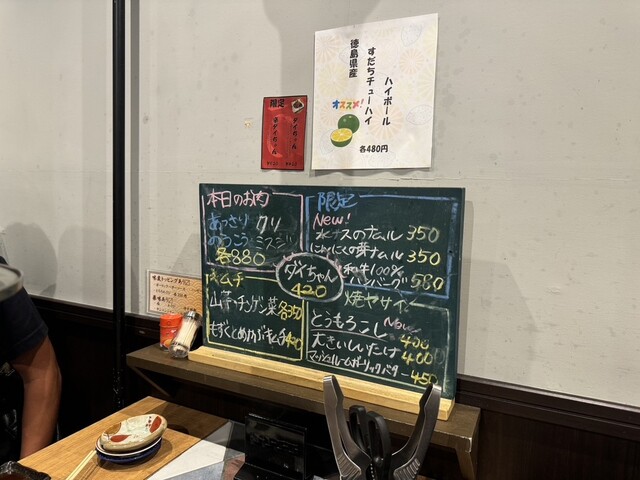 徳島県産
すだちチューハイ
ハイボール
オススメ!
各480円
限定
本日のお肉
あっさり クリ
のうこう ミスジ
各880
ダイちゃん
420
キムチ
山芋・チンゲン菜 各350
もずくとめかぶキムチ 420
限定
New!
水ナスのナムル 350
にんにくの芽ナムル 350
和牛100%
ハンバーグ 580
焼ヤサイ
とうもろこし New 400
大きいしいたけ 400
マッシュルームガーリックバター 450